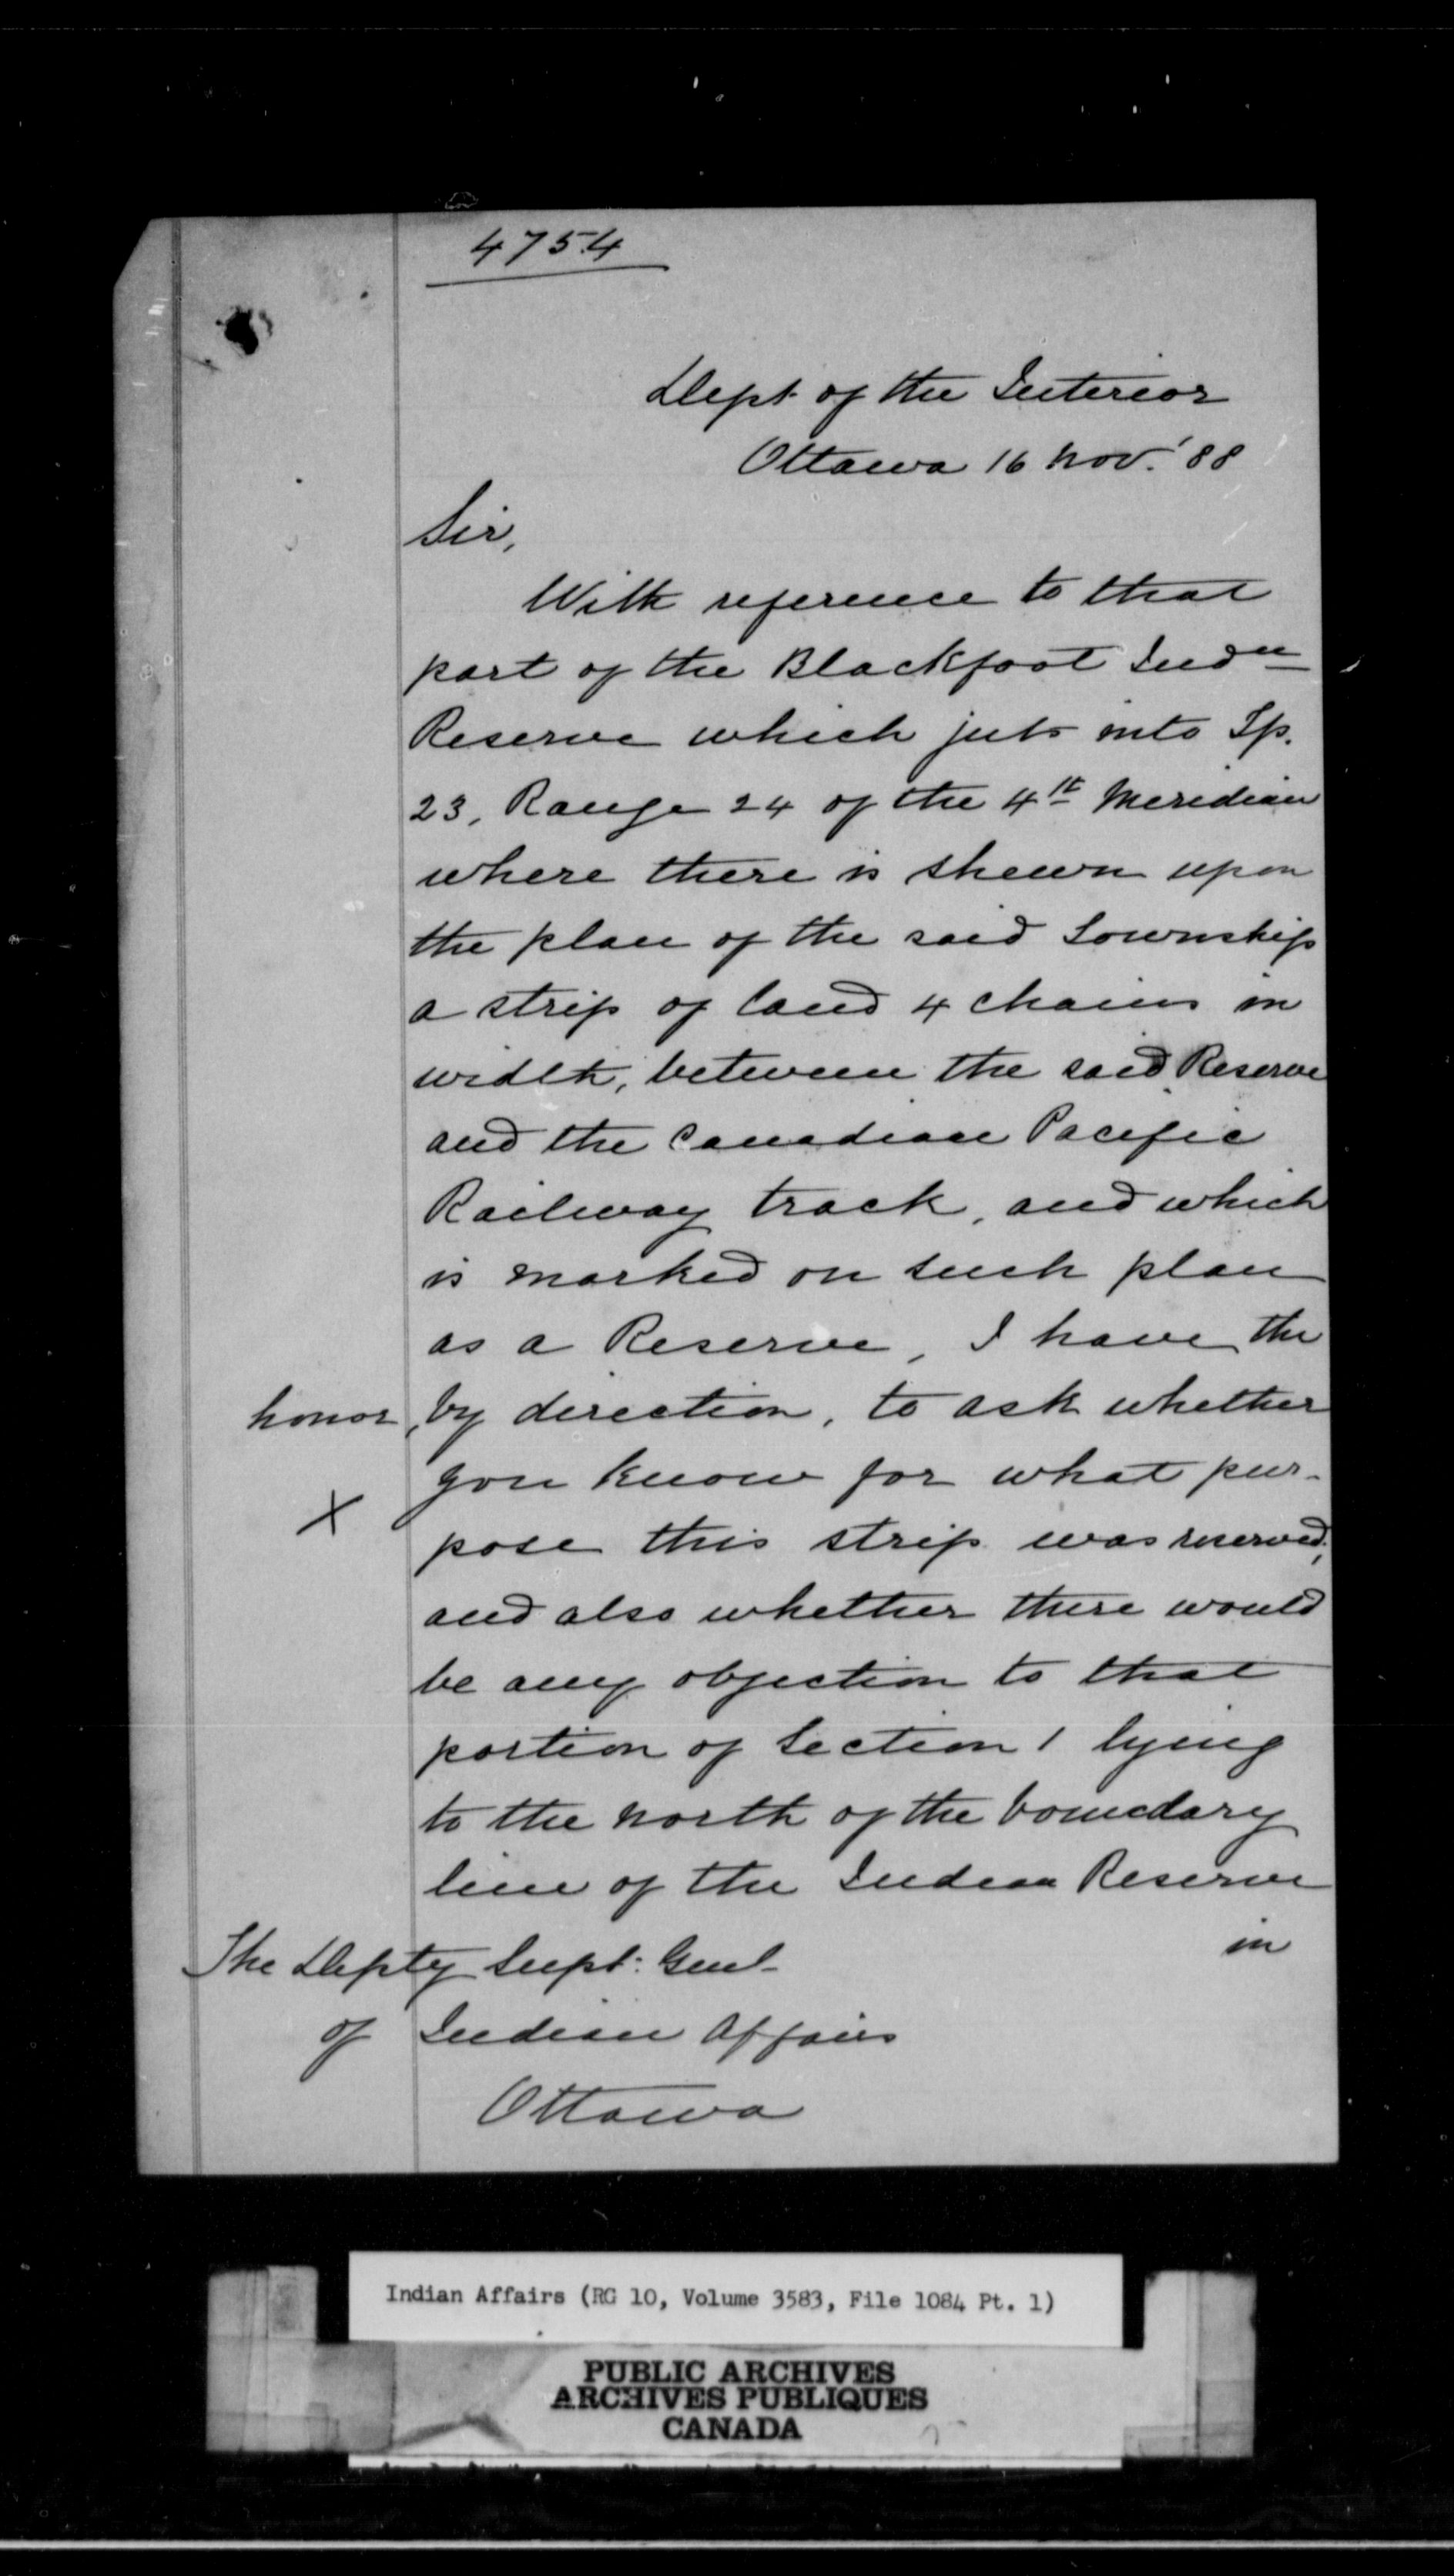 4754
Dept. of the Interior
Ottawa 16 Nov. '88
Sir,
With reference to that
part of the Blackfoot Indn
Reserve which juts into Tp.
23, Range 24 of the 4th Meridian
where there is shewn upon
the plan of the said Township
a strip of land 4 chains in
width, between the said Reserve
and the Canadian Pacific
Railway track, and which
is marked on such plan
as a Reserve, I have the
honor, by direction, to ask whether
you know for what pur-
X
pose this strip was reserved,
and also whether there would
be any objection to that
portion of Section 1 lying
to the north of the boundary
line of the Indian Reserve
in
The Depty Supt. Genl.
of Indian Affairs
Ottawa
Indian Affairs (RG 10, Volume 3583, File 1084 Pt. 1)
PUBLIC ARCHIVES
ARCHIVES PUBLIQUES
CANADA